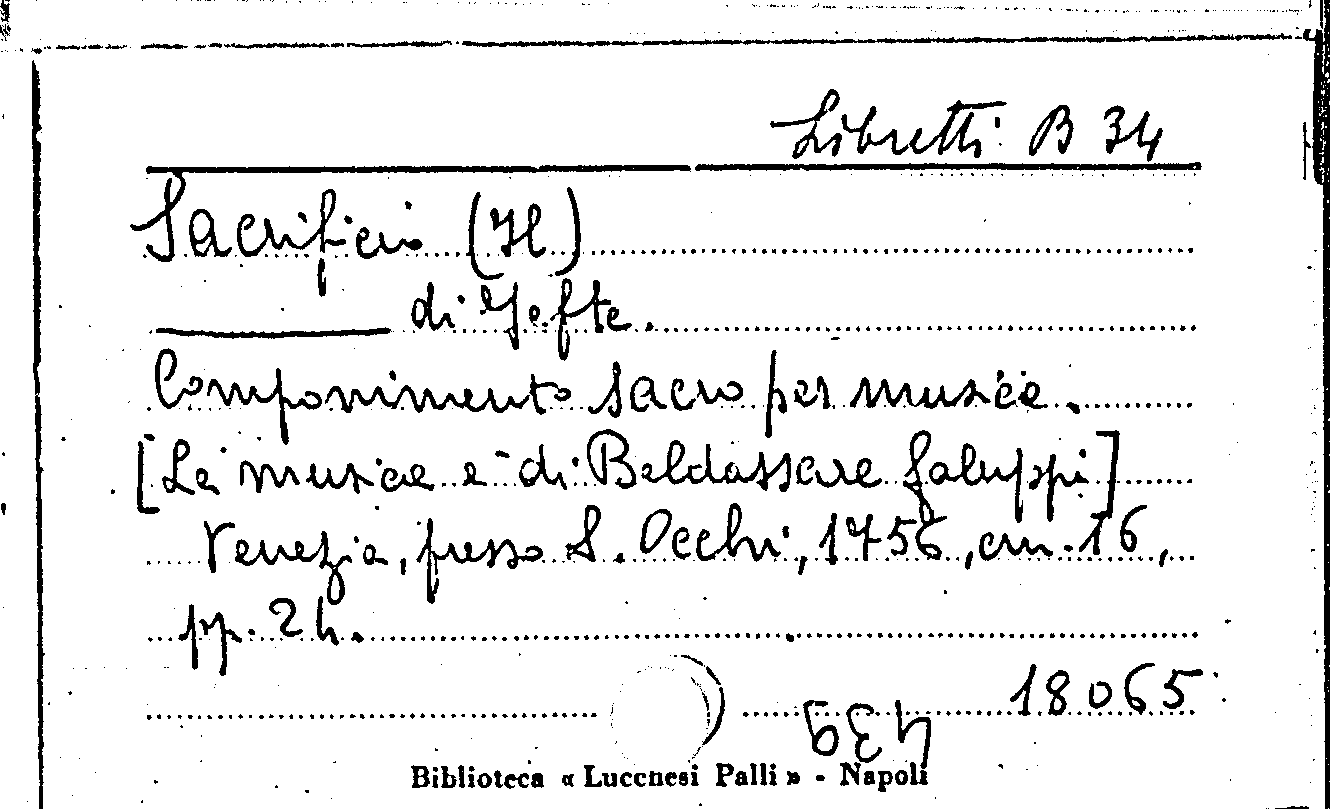 Libretti B 34
Sacrificio (Il)
di Jefte.
Componimento sacro per musica.
[La musica è di Baldassare Galuppi]
Venezia, presso S. Occhi, 1756, cm. 16,
pp. 24.
18065
Biblioteca « Lucchesi Palli » - Napoli